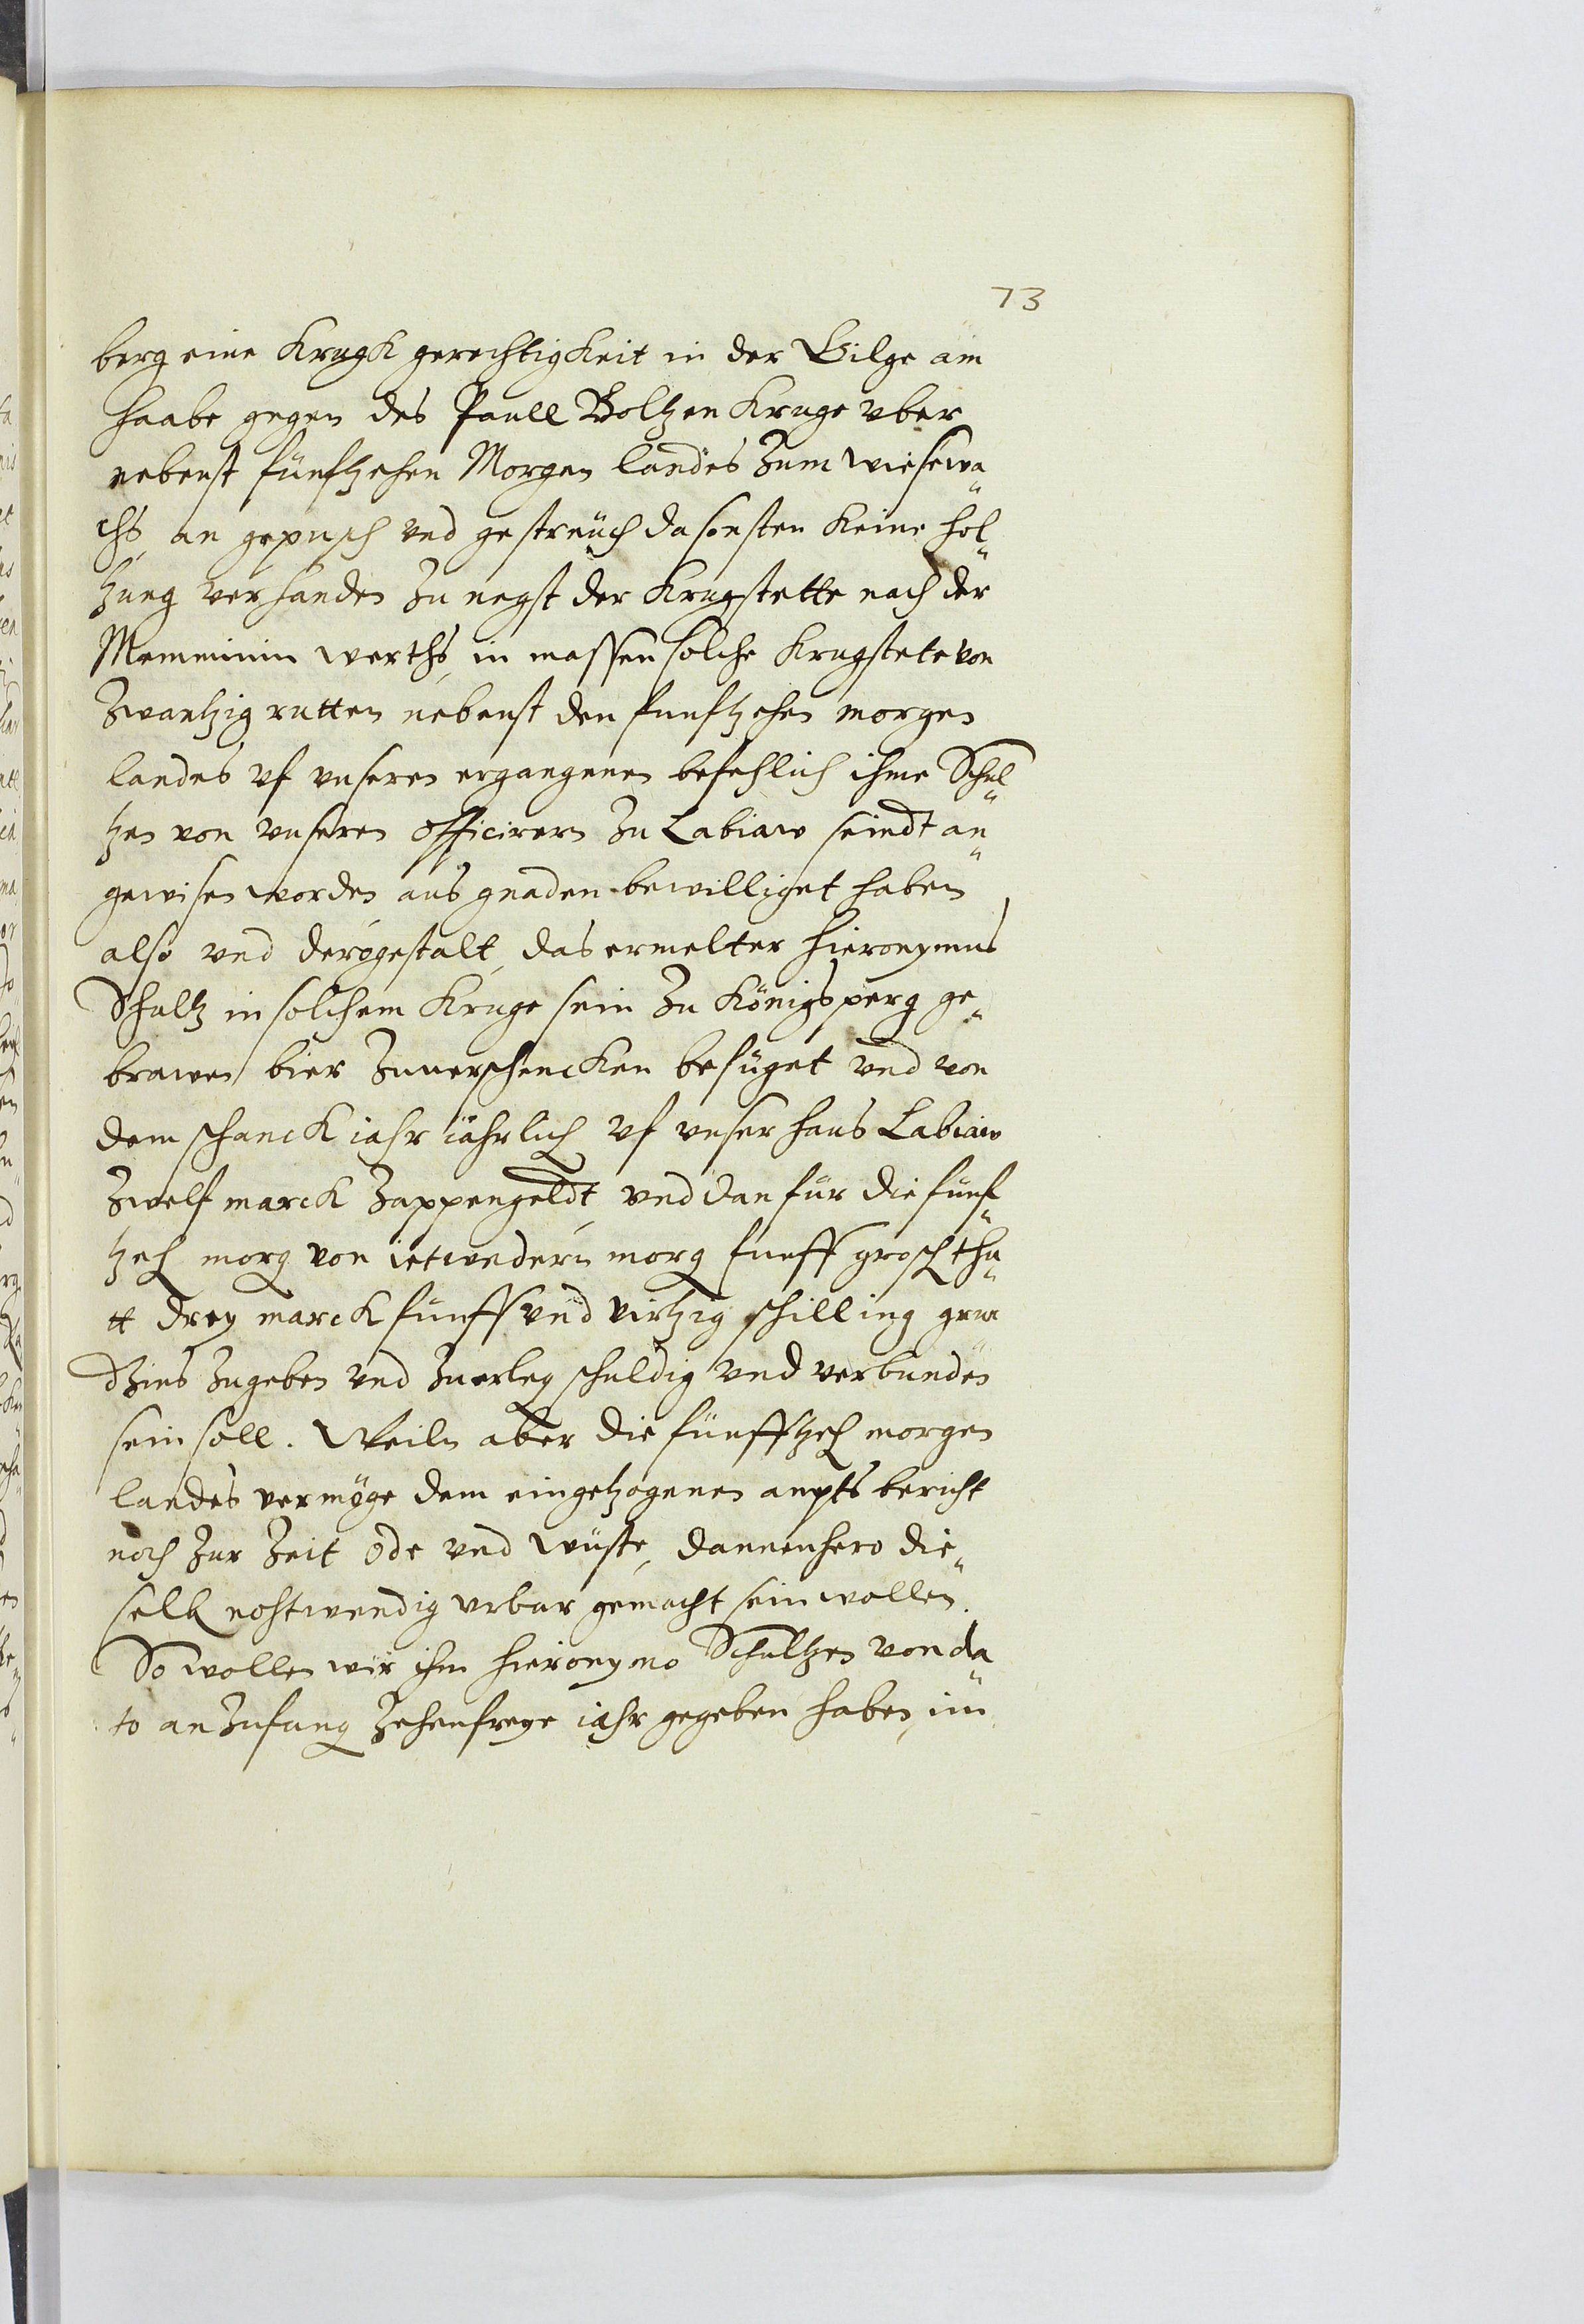 73
berg eine Krugk gerechtigkeit in der Gilge am
Haabe gegen des Paull Boltzen Kruge vber
nebenst fünftzehen Morgen landes zum wiesewa„
chs, an gepusch vnd gestreüch da sonsten keine hol„
tzung verhanden zu negst der Krugstette nach der
werths, in massen solche Krugstete von
Zwantzig rutten nebenst den funftzehen morgen
landes vf vnseren ergangenen befehlich ihme Schul„
tzen von vnseren Officirern zu Labiaw seindt an„
gewisen worden aus gnaden bewilliget haben
also vnd derogestalt, das ermelter Hieronymus
Schultz in solchem Kruge sein zu Königsperg ge„
brawen bier zuuerschencken befüget vnd von
dem schanck iahr iährlich vf vnser haus Labiaw
Zwelf marck Zappengeldt, vnd dan für die fünf„
tzeh morg von ietwedern morg funff grosch thu„
tt drey marck funff vnd virtzig schilling grun
dzins zugeben vnd zuerleg schuldig vnd verbunden
sein soll. Weiln aber die fünfftzeh morgen
landes vermöge dem eingetzogenen ampts bericht
noch zur Zeit öde vnd wüste, dannenhero die„
selb nohtwendig vrbar gemacht sein wollen.
So wollen wir ihm Hieronymo Schultzen von da„
to an Zufang Zehen freye iahr gegeben haben, in